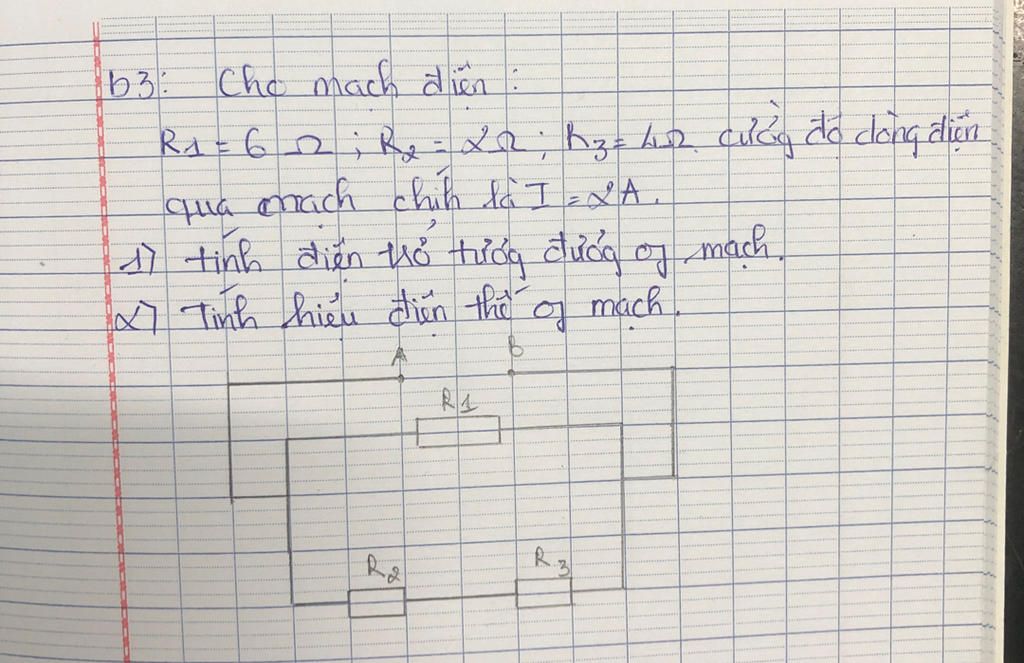 b3: Cho mạch điện:
R1 = 6 Ω; R2 = 2Ω; R3 = 4Ω. cường độ dòng điện
qua mạch chính là I = 2A.
1) tính điện trở tương đương of mạch.
2) Tính hiệu điện thế of mạch.
A B
R1
R2 R3